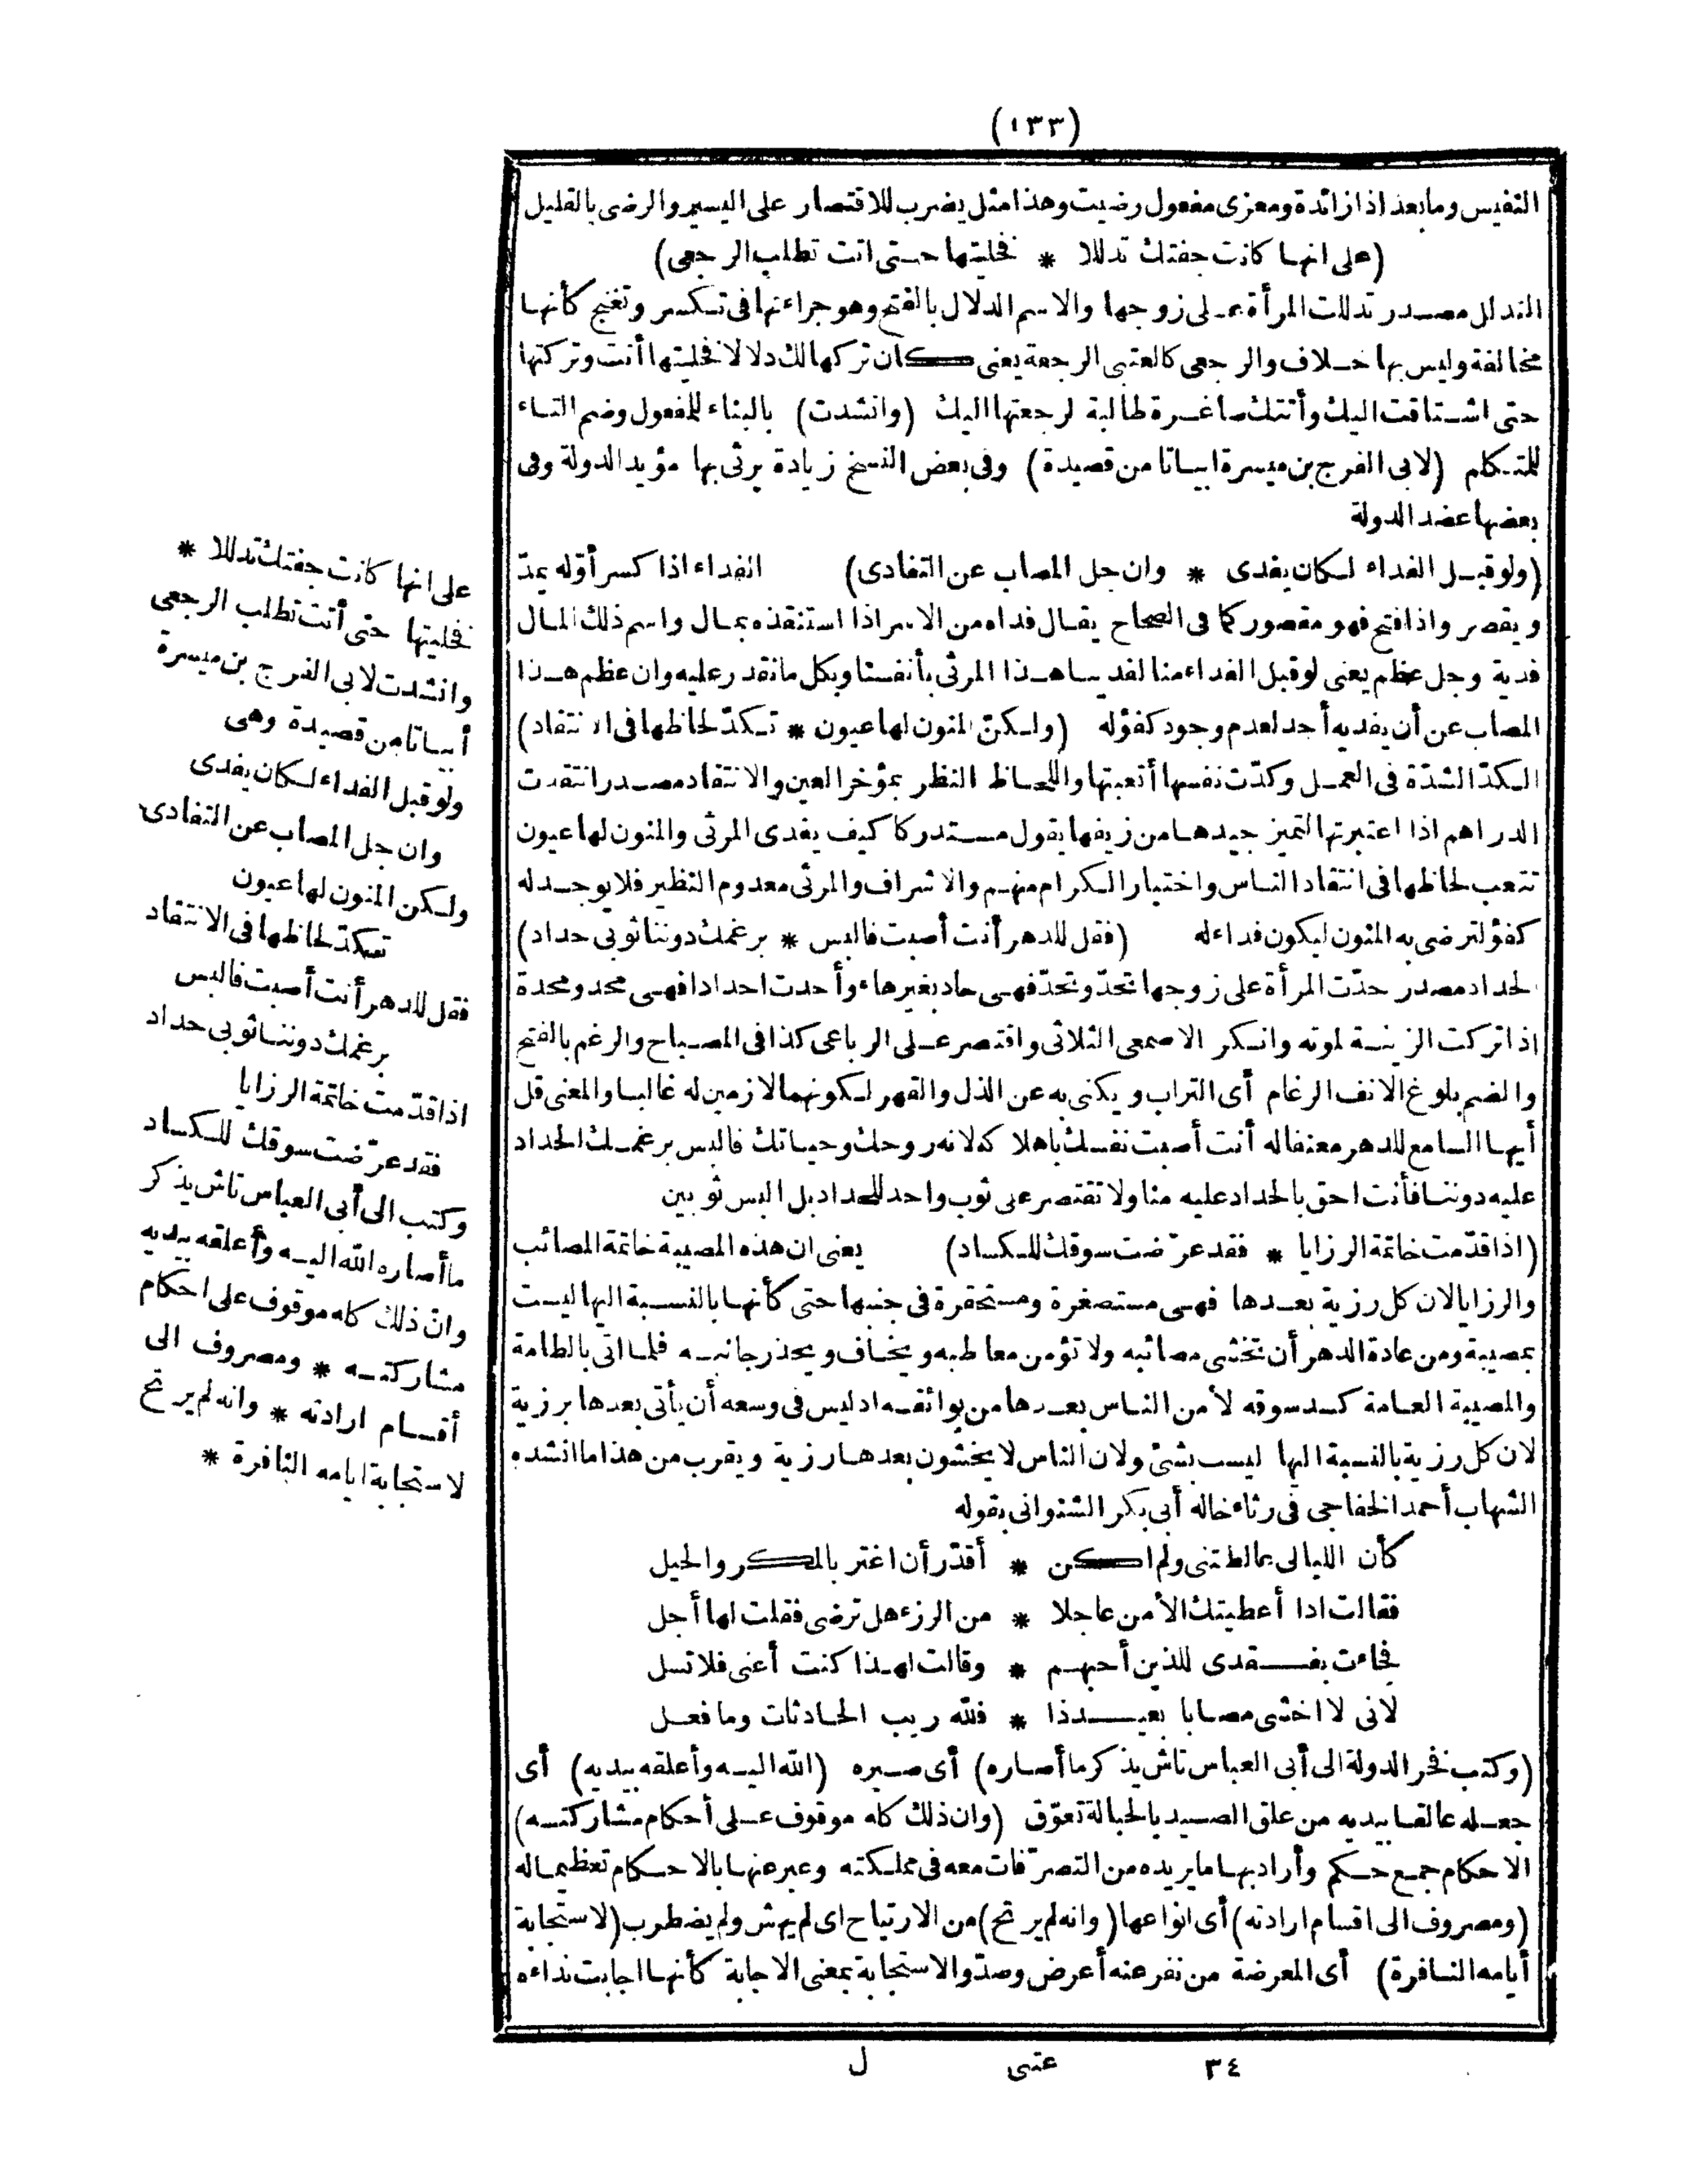 (١٣٣)
النفيس وما بعد اذا زائدة ومعزى مفعول رضيت وهذا مثل يضرب للاقتصار على اليسير والرضى بالقليل
(على انها كانت جفتك تدللا * فخليتها حتى اتت تطلب الرجعى)
التدلل مصدر تدللت المرأة على زوجها والاسم الدلال بالفتح وهو جراءتها فى تكسر وتغنج كأنها
مخالفة وليس بها خلاف والرجعى كالعتبى الرجعة يعنى كان تركها لك دلالا فخليتها أنت وتركتها
حتى اشتاقت اليك وأتتك صاغرة طالبة لرجعتها اليك (وانشدت) بالبناء للمفعول وضم التاء
للمتكلم (لابى الفرج بن ميسرة ابياتا من قصيدة) وفى بعض النسخ زيادة يرثى بها مؤيد الدولة وفى
بعضها عضد الدولة
(ولو قبل الفداء لكان يفدى * وان جل المصاب عن التفادى) الفداء اذا كسر أوّله يمدّ
ويقصر واذا فتح فهو مقصور كما فى الصحاح يقال فداه من الاسر اذا استنقذه بمال واسم ذلك المال
فدية وجل عظم يعنى لو قبل الفداء منا لفدينا هذا المرثى بأنفسنا وبكل ما نقدر عليه وان عظم هذا
المصاب عن أن يفديه أحد لعدم وجود كفؤله (ولكنّ المنون لها عيون * تكدّ لحاظها فى الانتقاد)
الكدّ الشدّة فى العمل وكدّت نفسها أتعبتها واللحاظ النظر بمؤخر العين والانتقاد مصدر انتقدت
الدراهم اذا اعتبرتها لتميز جيدها من زيفها يقول مستدركا كيف يفدى المرثى والمنون لها عيون
تتعب لحاظها فى انتقاد الناس واختيار الكرام منهم والاشراف والمرثى معدوم النظير فلا يوجد له
كفؤ لترضى به المنون ليكون فداءله (فقل للدهر أنت أصبت فالبس * برغمك دوننا ثوبى حداد)
الحداد مصدر حدّت المرأة على زوجها تحدّ وتحدّ فهى حاد بغير هاء وأحدت احدادا فهى محد ومحدة
اذا تركت الزينة لموته وانكر الاصمعى الثلاثى واقتصر على الرباعى كذا فى المصباح والرغم بالفتح
والضم بلوغ الانف الرغام أى التراب ويكنى به عن الذل والقهر لكونهما لازمين له غالبا والمعنى قل
أيها السامع للدهر معنفاله أنت أصبت نفسك باهلا كه لانه روحك وحياتك فالبس برغمك الحداد
عليه دوننا فأنت احق بالحداد عليه منا ولا تقتصر على ثوب واحد للحداد بل البس ثوبين
(اذا قدّمت خاتمة الرزايا * فقد عرّضت سوقك للكساد) يعنى ان هذه المصيبة خاتمة المصائب
والرزايا لان كل رزية بعدها فهى مستصغرة ومستحقرة فى جنبها حتى كأنها بالنسبة اليها ليست
بمصيبة ومن عادة الدهر أن تخشى مصائبه ولا تؤمن معاطبه ويخاف ويحذر جانبه فلما اتى بالطامة
والمصيبة العامة كسد سوقه لأمن الناس بعدها من بوائقه اذ ليس فى وسعه أن يأتى بعدها برزية
لان كل رزية بالنسبة اليها ليست بشئ ولان الناس لا يخشون بعدها رزية ويقرب من هذا ما انشده
الشهاب أحمد الخفاجى فى رثاء خاله أبى بكر الشنوانى بقوله
كأن الليالى غالطتنى ولم اكن * أقدّر أن اغتر بالمكر والحيل
فقالت اذا أعطيتك الأمن عاجلا * من الرزء هل ترضى فقلت لها أجل
فجاءت بفقدى للذين أحبهم * وقالت لهذا كنت أعنى فلا تسل
لانى لا اخشى مصابا بعيد ذا * فلله ريب الحادثات وما فعل
(وكتب فخر الدولة الى أبى العباس تاش يذكر ما أصاره) أى صيره (الله اليه وأعلقه بيديه) أى
جعله عالقا بيديه من علق الصيد بالحبالة تعوّق (وان ذلك كله موقوف على أحكام مشاركته)
الاحكام جمع حكم وأراد بها ما يريده من التصرّفات معه فى مملكته وعبر عنها بالاحكام تعظيماله
(ومصروف الى اقسام ارادته) أى انواعها (وانه لم يرتح) من الارتياح اى لم يهش ولم يضطرب (لاستجابة
أيامه النافرة) أى المعرضة من نفر عنه أعرض وصدّ والاستجابة بمعنى الاجابة كأنها اجابت نداءه
٣٤ عتبى ل
على انها كانت جفتك تدللا *
فخليتها حتى أتت تطلب الرجعى
وانشدت لابى الفرج بن ميسرة
أبياتا من قصيدة وهى
ولو قبل الفداء لكان يفدى
وان جل المصاب عن التفادى
ولكن المنون لها عيون
تكدّ لحاظها فى الانتقاد
فقل للدهر أنت أصبت فالبس
برغمك دوننا ثوبى حداد
اذا قدّمت خاتمة الرزايا
فقد عرّضت سوقك للكساد
وكتب الى أبى العباس تاش يذكر
ما أصاره الله اليه وأعلقه بيديه
وان ذلك كله موقوف على احكام
مشاركته * ومصروف الى
أقسام ارادته * وانه لم يرتح
لاستجابة ايامه النافرة *